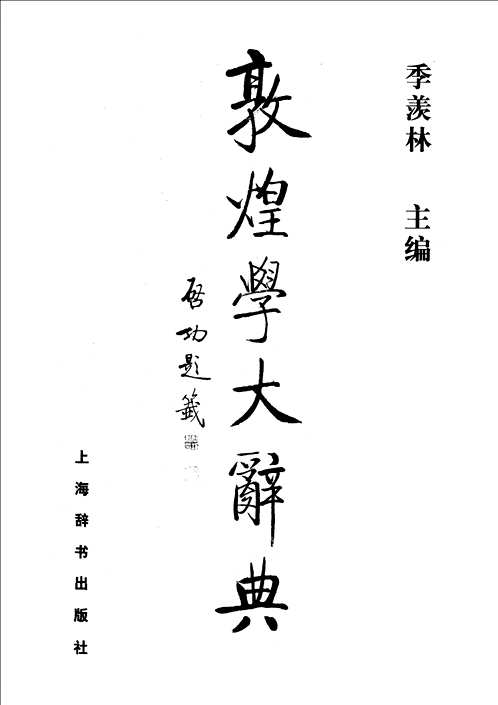 季羡林 主编
敦煌學大辭典
啓功題籤
上海辞书出版社